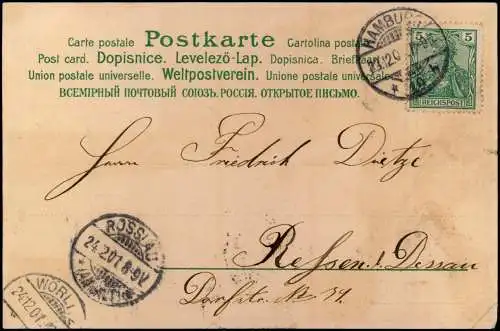 Carte postale Postkarte Cartolina postale
Post card. Dopisnice. Levelező-Lap. Dopisnica. Briefkaart
Union postale universelle. Weltpostverein. Unione postale universale
ВСЕМІРНЫЙ ПОЧТОВЫЙ СОЮЗЪ. РОССІЯ. ОТКРЫТОЕ ПИСЬМО.
HAMBURG
5 5
REICHSPOST
Herrn Friedrich Dietze
ROSSLAU
24.12.01.8-9V.
(ANHALT)
Dessau
Dorfstr. No. 34
WÖRL
24.12.01